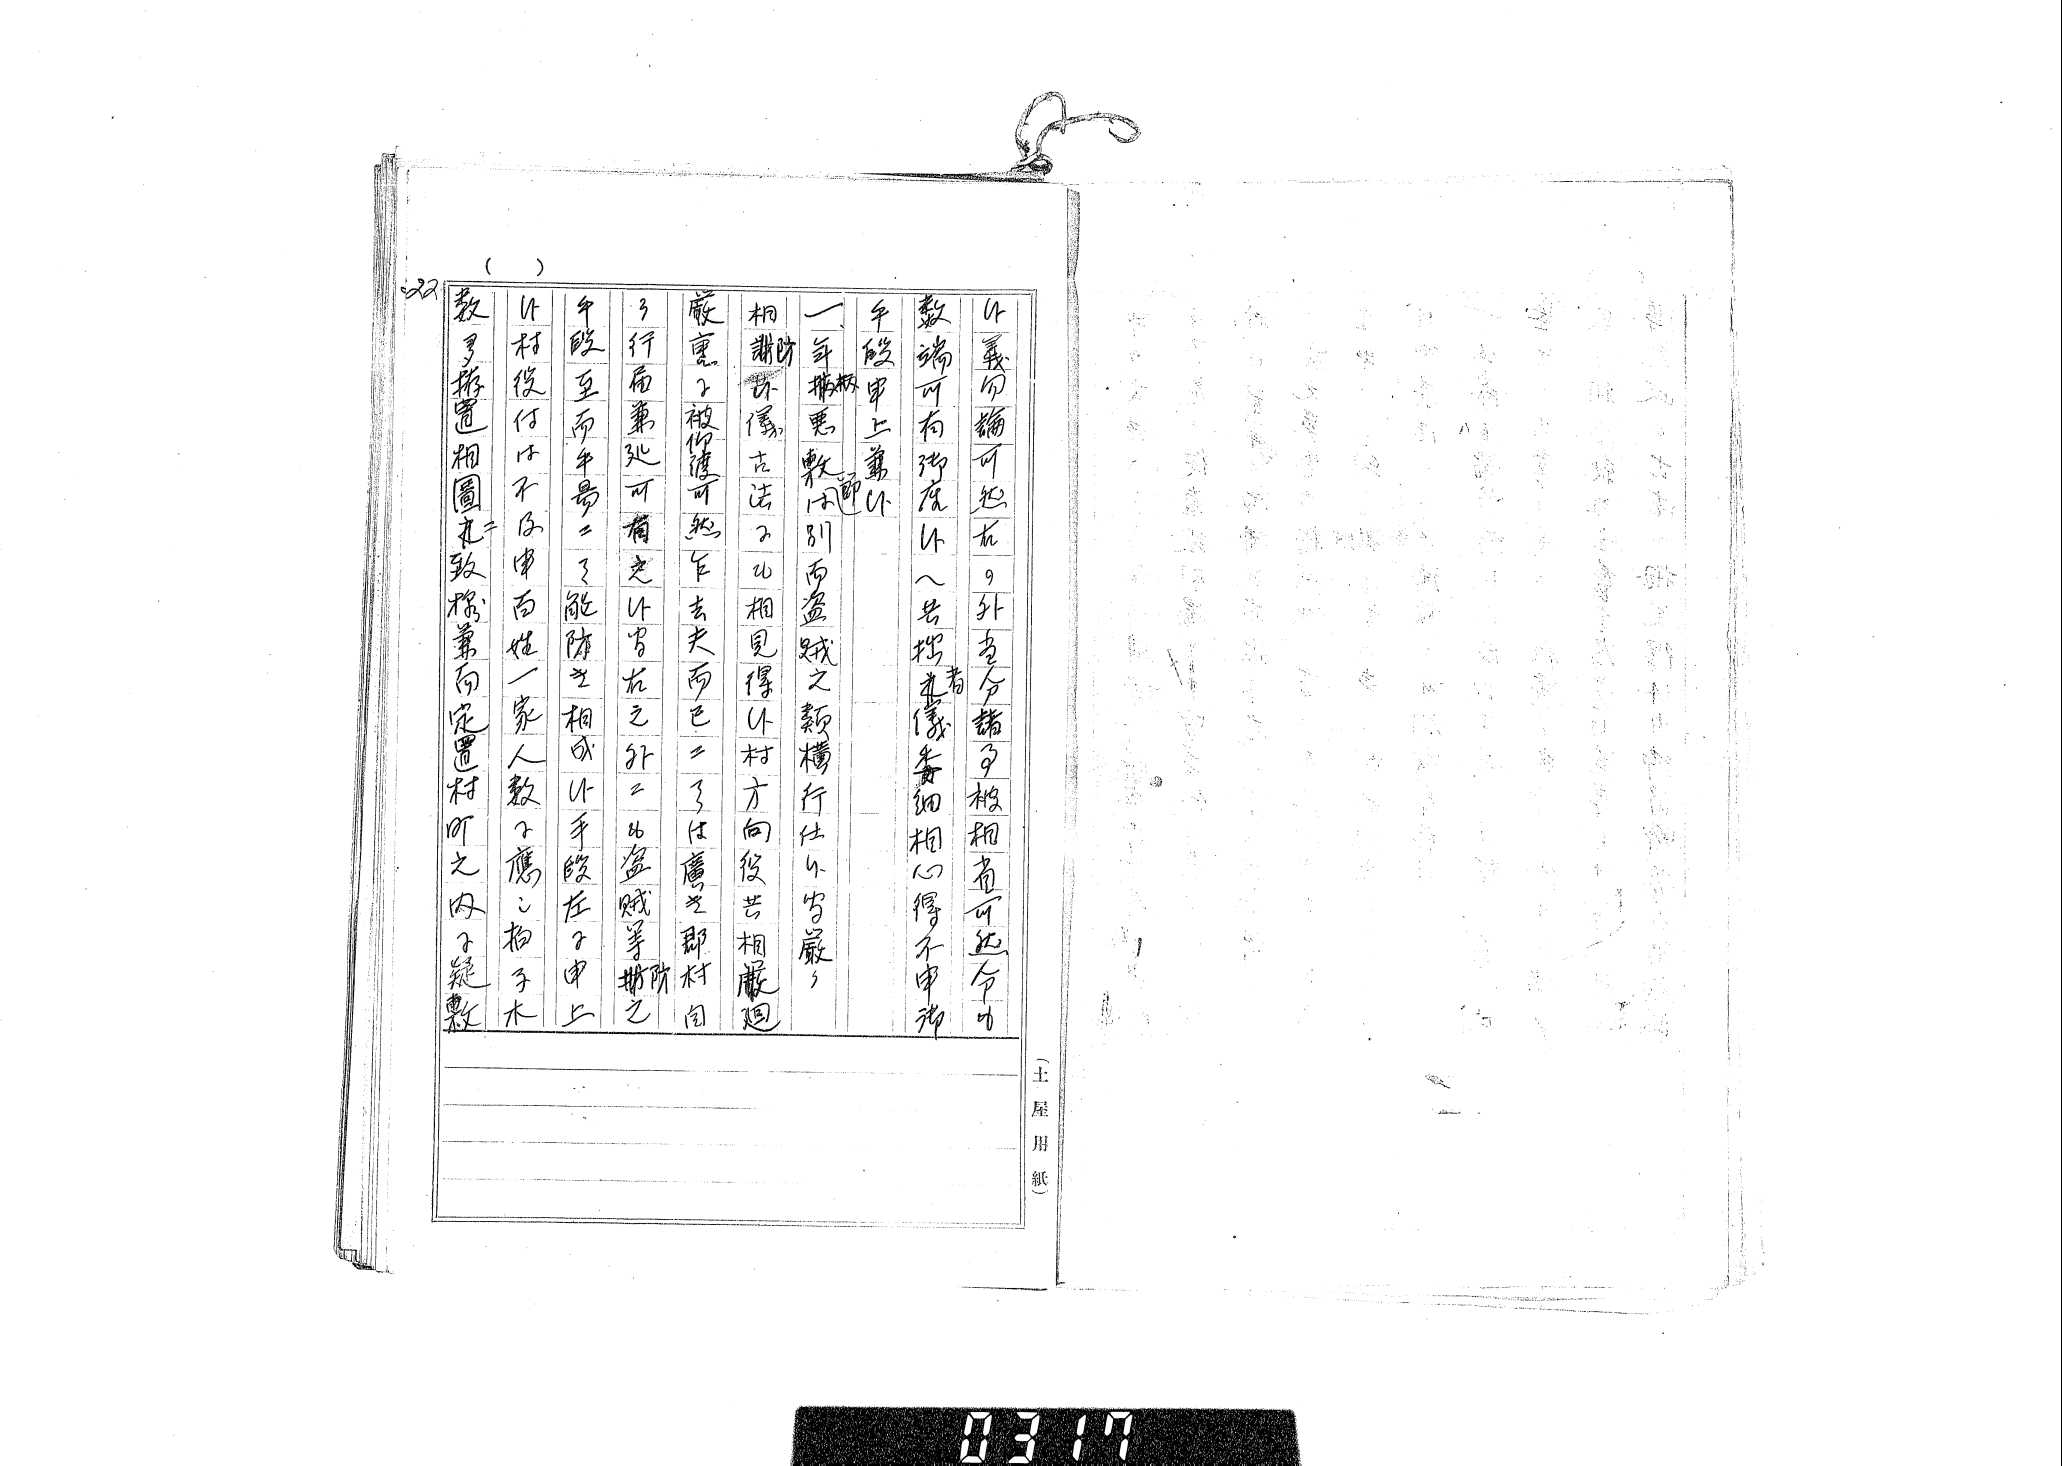 候義勿論可然右の外当今諸事被相省可然今も
数端可有御座候へ共拙者儀委細相心得不申御
手段申上兼候
一、年柄悪敷節は別而盗賊之類横行仕候皆厳く
相防候儀古法にも相見得候村方向役共相厳廻
厳重に被仰渡可然乍去夫而已ニては廣き郡村自
ら行届兼処可有之候皆右之外ニも盗賊等防之
手段至而手易ニて能防き相成候手段左に申上
候村役付は不及申百姓一家人数に應し拍子木
数多拵置相圖ニ致様兼而定置村町之内に疑敷
:22
( )
(土屋用紙)
0317